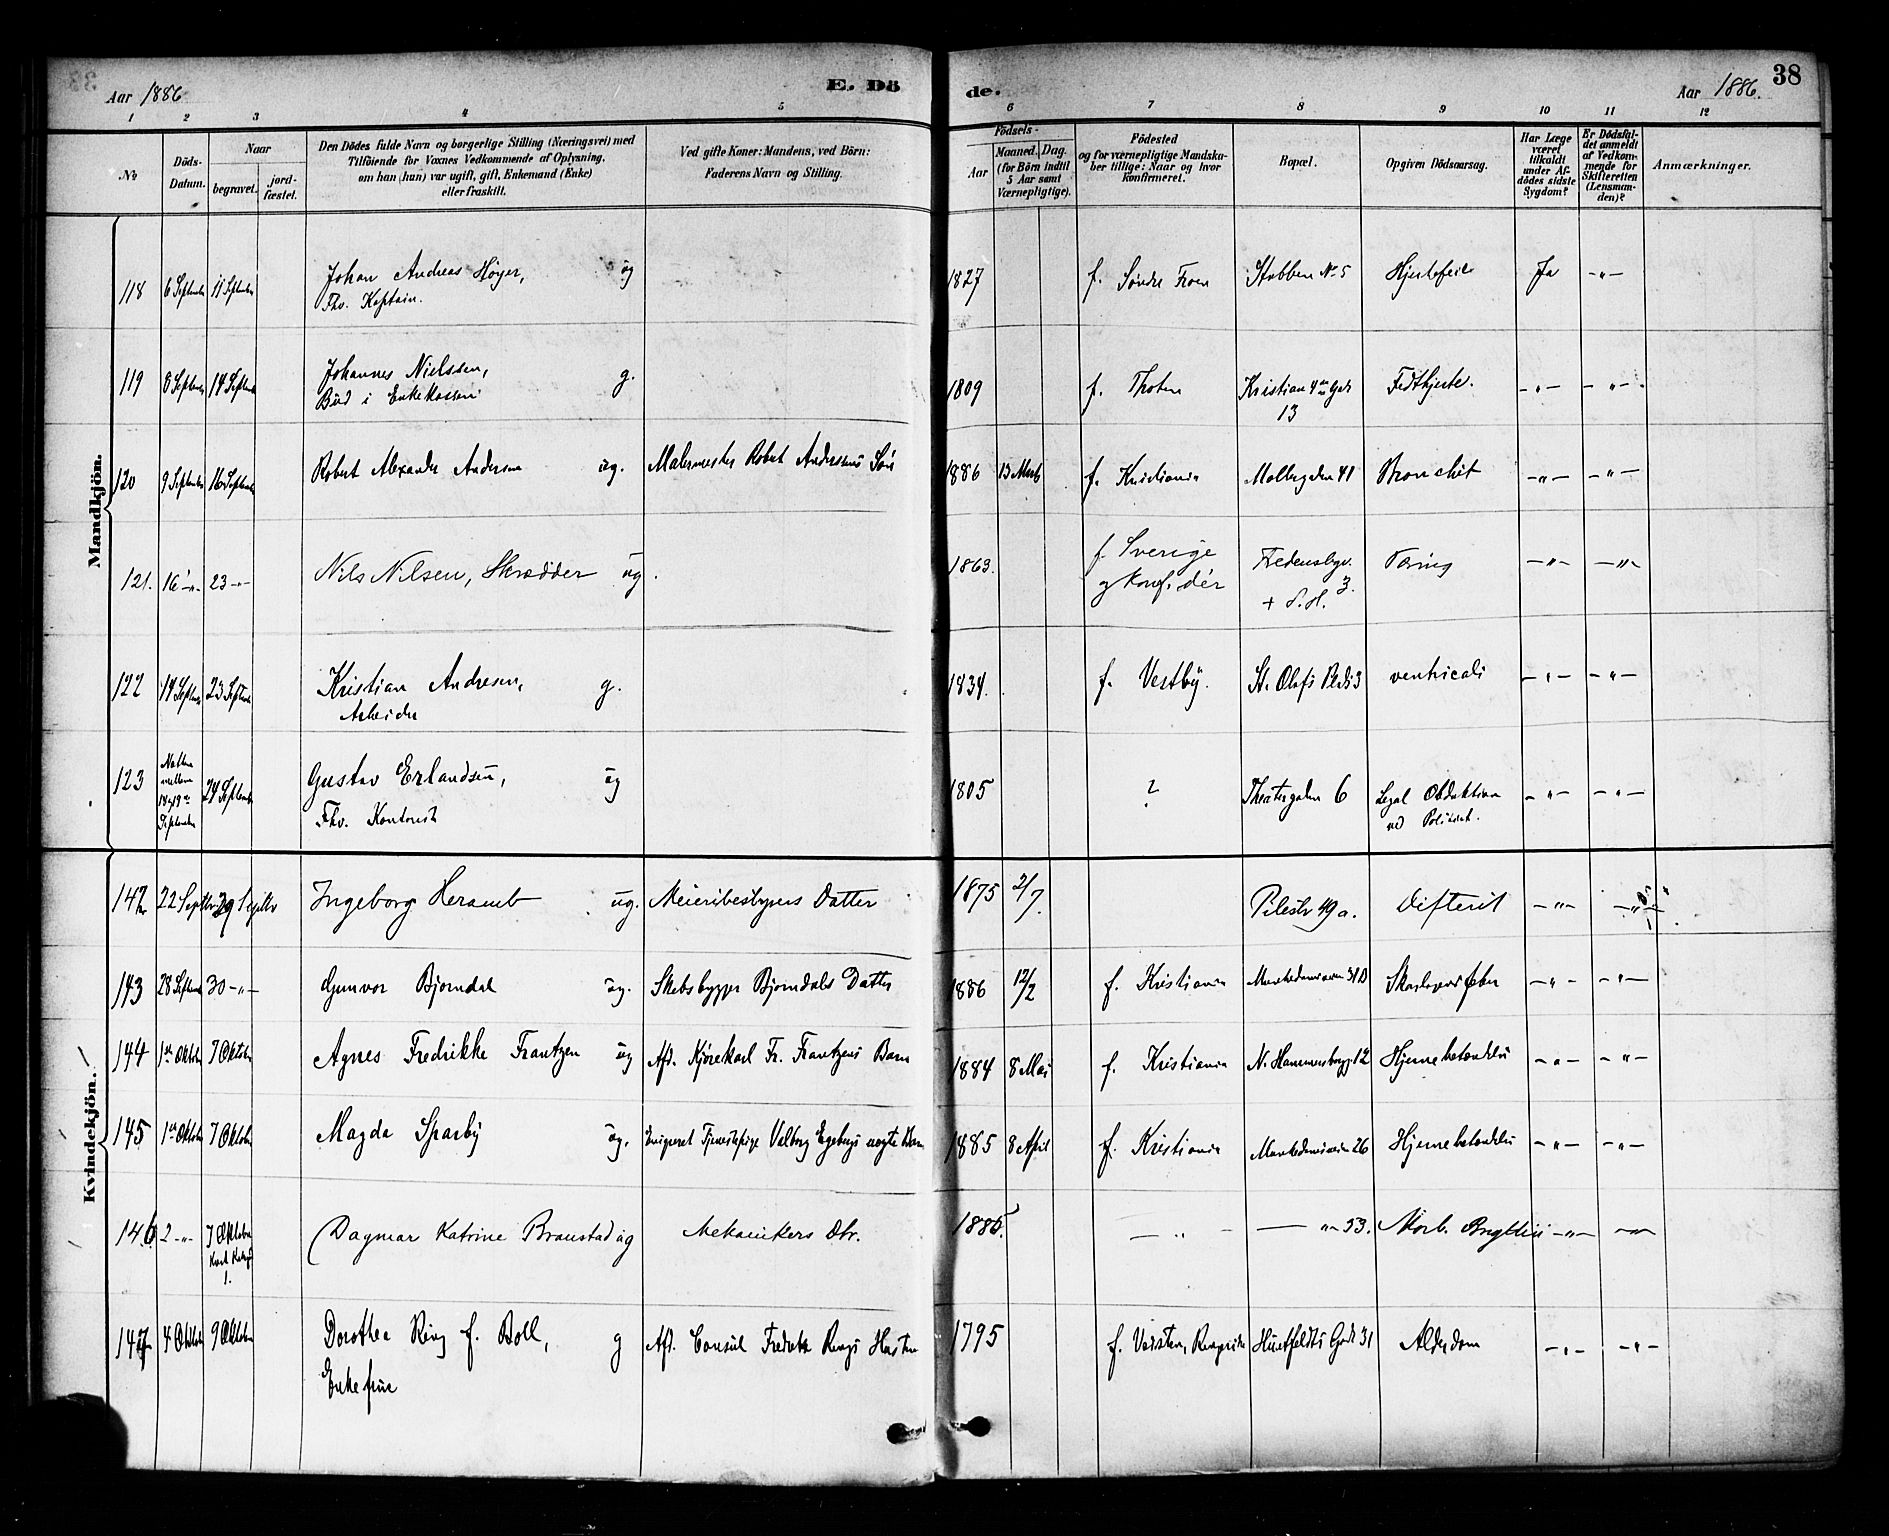 38
Aar 1886
E. Dö
de.
Aar 1886.
1 2 3 4 5 6 7 8 9 10 11 12
No
Döds-
Datum.
Naar
begravet.
jord-
fæstet.
Den Dödes fulde Navn og borgerlige Stilling (Næringsvei) med
Tilföiende for Voxnes Vedkommende af Oplysning,
om han (hun) var ugift, gift, Enkemand (Enke)
eller fraskilt.
Ved gifte Koner: Mandens, ved Börn:
Faderens Navn og Stilling.
Födsels-
Aar
Maaned. Dag.
(for Börn indtil
5 Aar samt
Værnepligtige).
Födested
og for værnepligtige Mandska-
ber tillige: Naar og hvor
konfirmeret.
Bopæl.
Opgiven Dödsaarsag.
Har Læge
været
tilkaldt
under Af-
dödes sidste
Sygdom?
Er Dödsfal-
det anmeldt
af Vedkom-
mende for
Skifteretten
(Lensman-
den)?
Anmærkninger.
Mandkjön.
118 6 Septembr 11 Septembr Johan Andreas Höyer, ug 1827 f. Söndre Froen Stubben No 5 Hjertefeil Ja -"-
Fhv. Kaptain.
119 8 Septembr 14 Septembr Johannes Nielssen, g. 1809 f. Thoten Kristian 4des Gade Fedthjerte. -"- -"-
Bud i Enkekassen 13
120 9 Septembr 16 Septembr Robert Alexander Andersen ug. Malermester Robert Anderssens Sön 1886 13 Marts f. Kristiania Mollergaden 41 Bronchit -"- -"-
121. 16 -"- 23 -"- Nils Nilsen, Skrædder ug. 1863. f. Sverige Fredensbgv. Tæring -"- -"-
og konf. dér 3.
+ S.H.
122 19 Septembr 23 Septembr Kristian Andresen, g. 1834. f. Vestby. St. Olafs Plads 3 ventriculi -"- -"-
Arbeider
123 Natten mellem 18 og 19de September 24 Septembr Gustav Erlandsen, ug 1805 ? Theatergaden 6 Legal Obduktion -"- -"-
Fhv. Kontorist ved Politiet.
Kvindekjön.
142 22 Septbr 29 Septbr Ingeborg Heramb ug. Meieribestyrers Datter 1875 2/7. Pilestr 49 a. Difterit -"- -"-
143 28 Septembr 30 -"- Gunvor Bjorndal ug. Skibsbygger Bjorndals Datter 1886 12/2 f. Kristiania Markedsveien 31 B Skarlagensfeber -"- -"-
144 1ste Oktober 7 Oktober Agnes Fredrikke Frantzen ug Afd. Kjörekarl Fr. Frantzens Barn 1884 8 Mai f. Kristiania N. Hammersborggd 12 Hjernebetændelse -"- -"-
145 1ste Oktober 7 Oktober Magda Sparby ug. Emigreret Tjenestepige Valborg Engebergs uægte Barn 1885 8 April f. Kristiania Markedsveien 26 Hjernebetændelse -"- -"-
146 2 -"- 7 Oktober Dagmar Katrine Branstad ug Mekanikers Dtr. 1885. -"- -"- 33. Morb. Brightii -"- -"-
1.
147 4 Oktober 9 Oktober Dorothea Ring f. Boll, g Afd. Consul Fredrik Rings Hustru 1795 f. Ringerike Huitfeldts Gade 31 Alderdom -"- -"-
Enkefrue